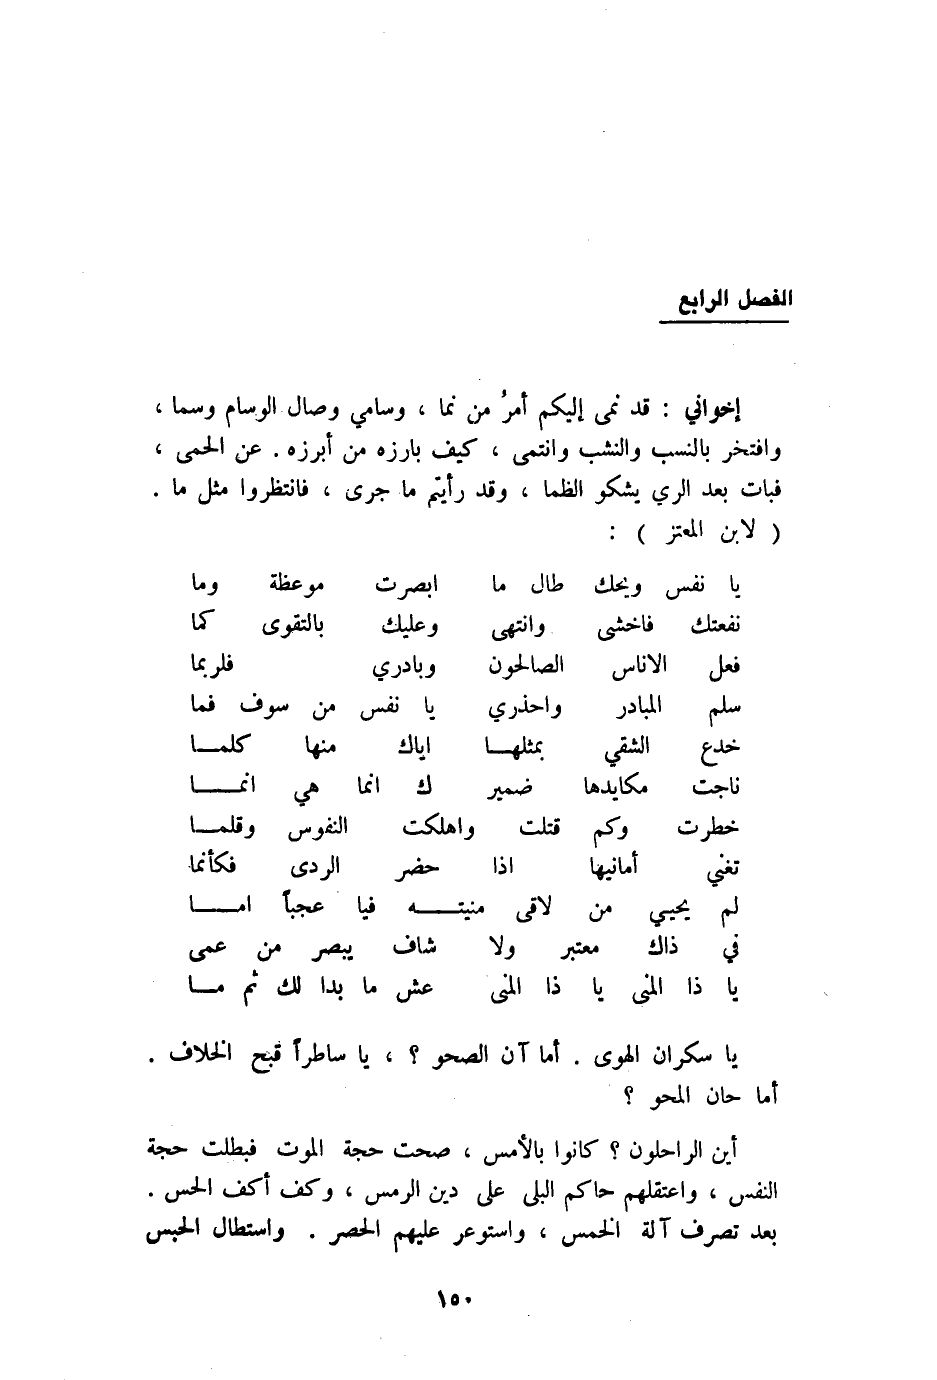 الفصل الرابع
إخواني : قد نمى إليكم أمرُ من نما ، وسامي وصال الوسام وسما ،
وافتخر بالنسب والنشب وانتمى ، كيف بارزه من أبرزه . عن الحمى ،
فبات بعد الري يشكو الظما ، وقد رأيتم ما جرى ، فانتظروا مثل ما .
( لابن المعتز ) :
يا نفس ويحك طال ما ابصرت موعظة وما
نفعتك فاخشى وانتهى وعليك بالتقوى كما
فعل الاناس الصالحون وبادري فلربما
سلم المبادر واحذري يا نفس من سوف فما
خدع الشقي بمثلهـا اياك منها كلمـا
ناجت مكايدها ضمير ك انما هي انمـا
خطرت وكم قتلت واهلكت النفوس وقلمـا
تغني أمانيها اذا حضر الردى فكأنما
لم يحيي من لاقى منيتـه فيا عجباً امـا
في ذاك معتبر ولا شاف يبصر من عمى
يا ذا المنى يا ذا المنى عش ما بدا لك ثم مـا
يا سكران الهوى . أما آن الصحو ؟ ، يا ساطراً قبح الخلاف .
أما حان المحو ؟
أين الراحلون ؟ كانوا بالأمس ، صحت حجة الموت فبطلت حجة
النفس ، واعتقلهم حاكم البلى على دين الرمس ، وكف أكف الحس .
بعد تصرف آلة الخمس ، واستوعر عليهم الحصر . واستطال الحبس
١٥٠